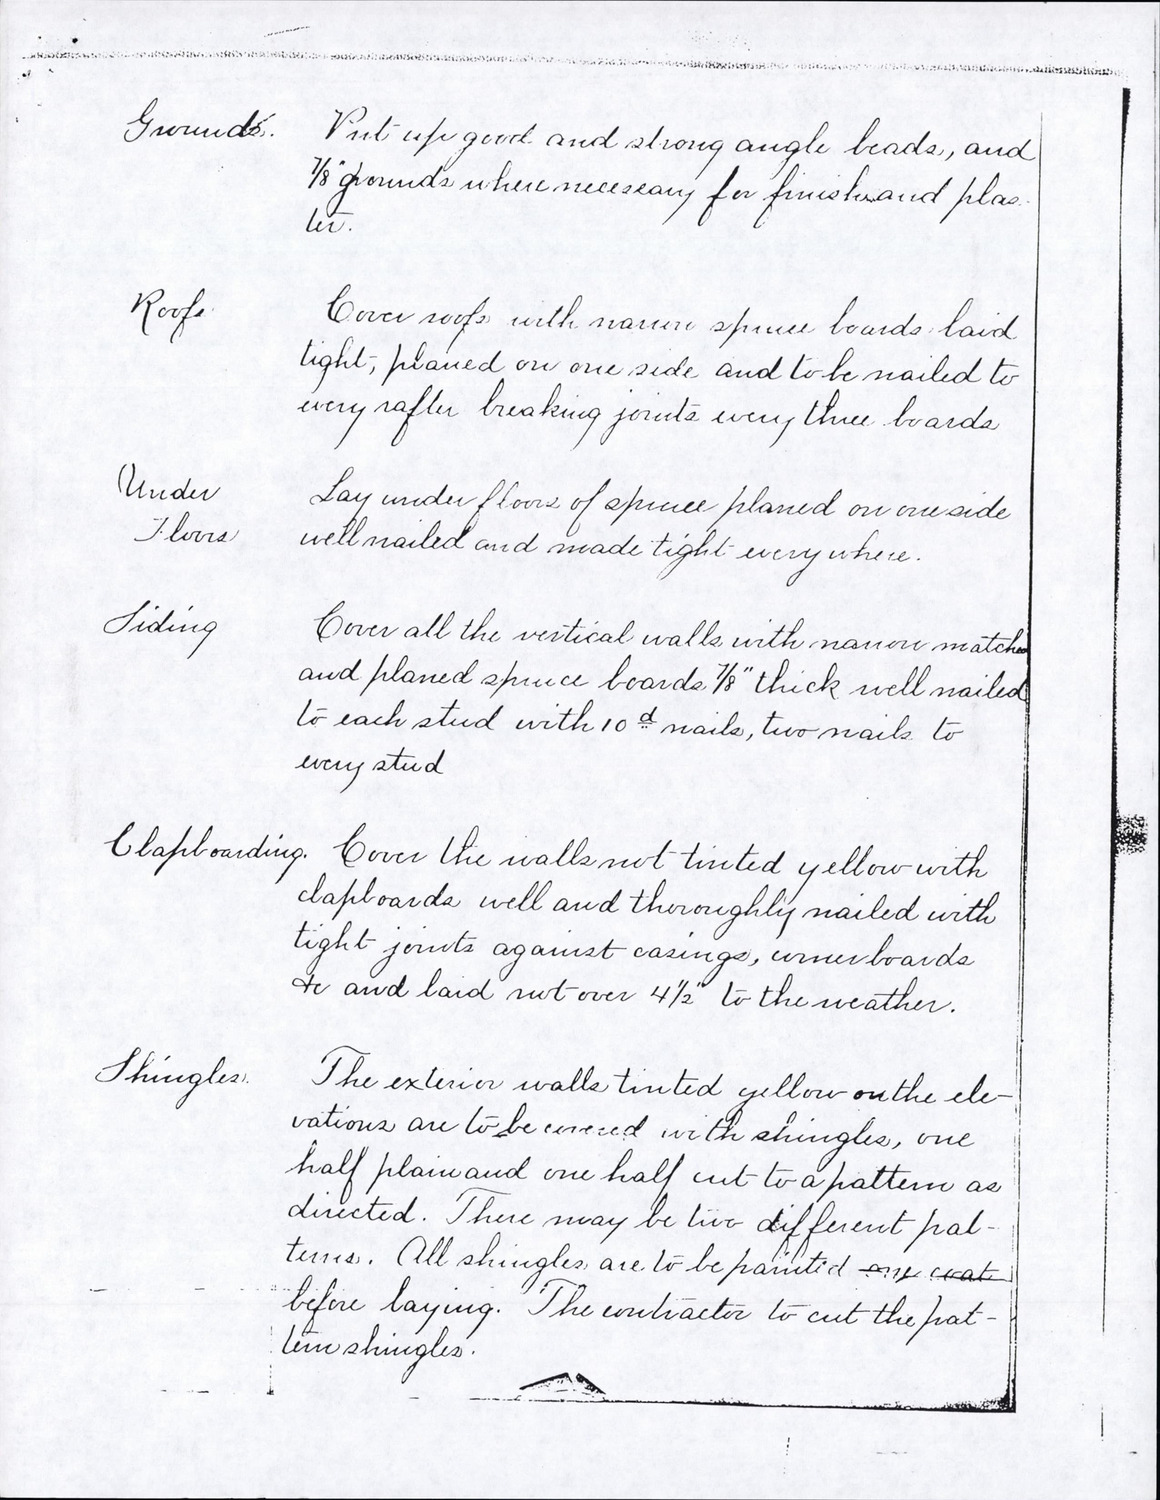 Grounds. Put up good and strong angle beads, and
7/8" grounds where necessary for finish and plas-
ter.
Roofs Cover roofs with narrow spruce boards laid
tight, planed on one side and to be nailed to
every rafter breaking joints every three boards
Under Lay under floors of spruce planed on one side
Floors well nailed and made tight every where.
Siding Cover all the vertical walls with narrow matched
and planed spruce boards 7/8" thick well nailed
to each stud with 10d nails, two nails to
every stud
Clapboarding. Cover the walls not tinted yellow with
clapboards well and thoroughly nailed with
tight joints against casings, cornerboards
&c and laid not over 4 1/2" to the weather.
Shingles. The exterior walls tinted yellow on the ele-
vations are to be covered with shingles, one
half plain and one half cut to a pattern as
directed. There may be two different pat-
terns. All shingles are to be painted one coat
before laying. The contractor to cut the pat-
tern shingles.